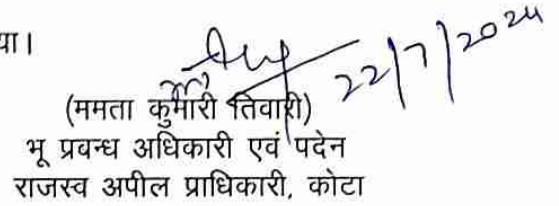 या।
22/7/2024
(ममता कुमारी तिवारी)
भू प्रबन्ध अधिकारी एवं पदेन
राजस्व अपील प्राधिकारी, कोटा